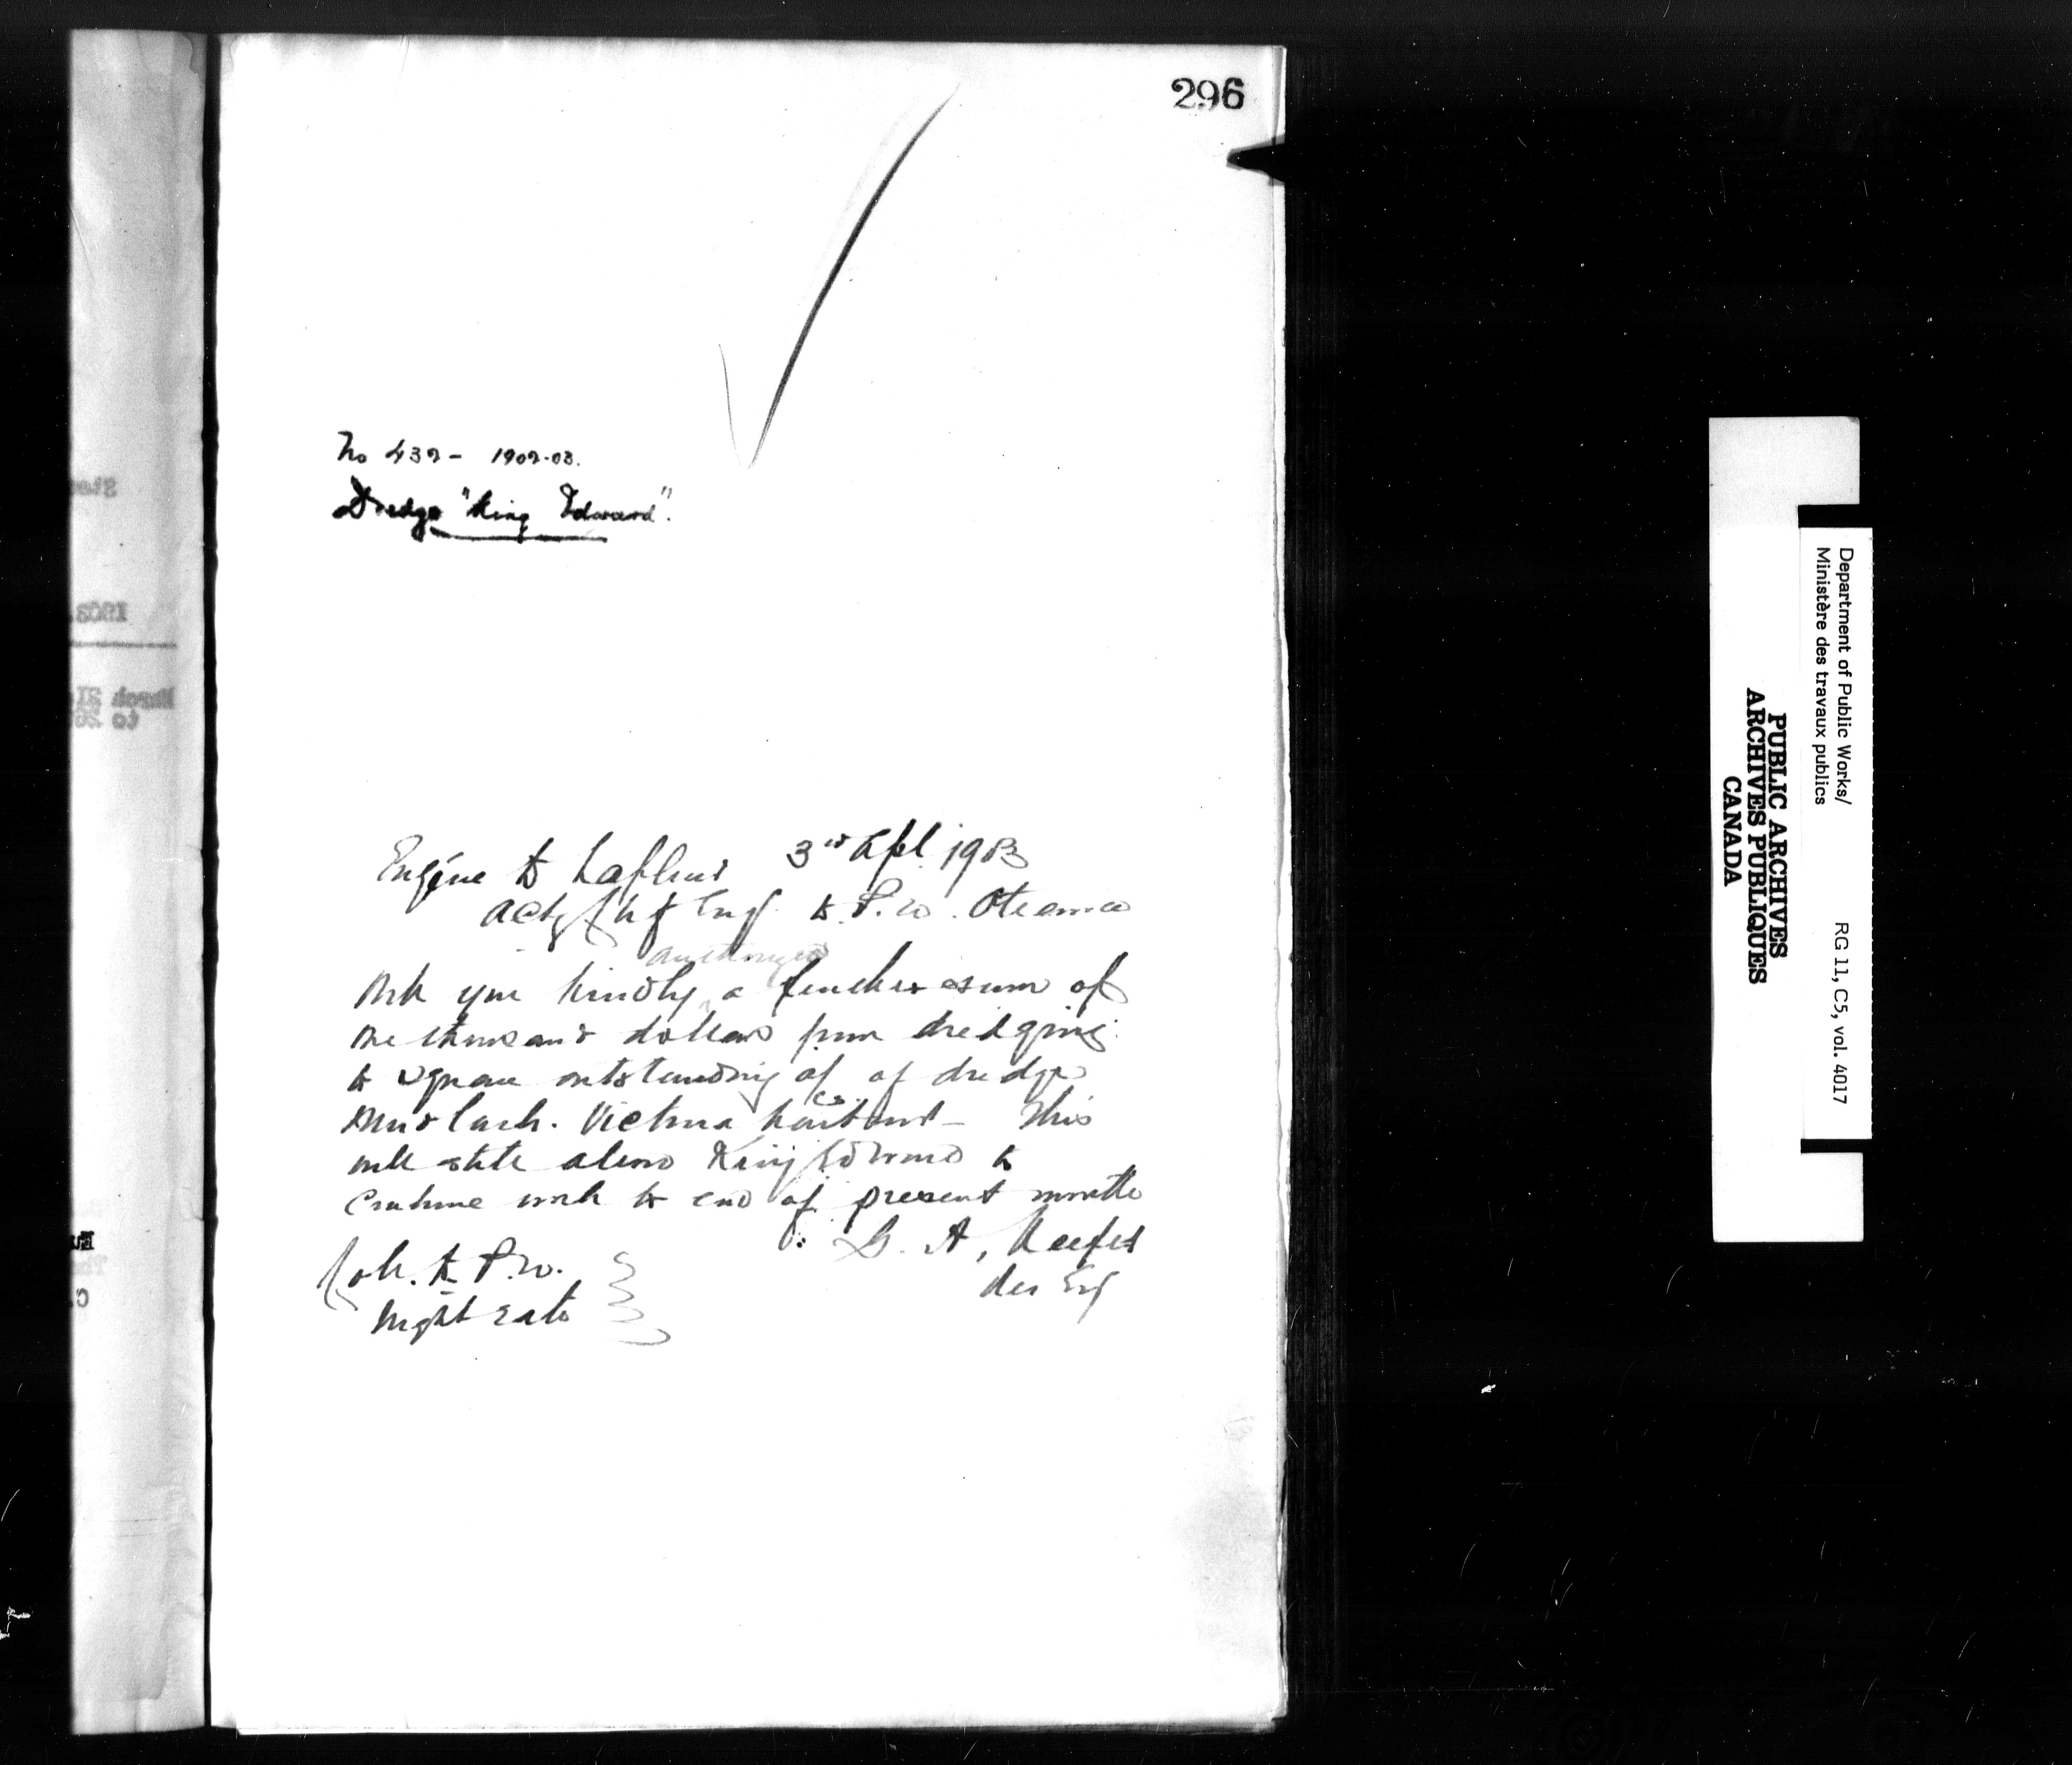 296
No 432 - 1902-03.
Dredge "King Edward".
Eugène D Lafleur 3rd Apl 1903
Actg Chf Engr D.P.W. Ottawa
authorize
Ask you kindly a further sum of
one thousand dollars from dredging
to square outstanding of of dredge
Mudlark. Victoria harbour - This
will allow King Edward to
continue work to end of present month
G. A. Keefer
Res Eng
Coll. D.P.W.
Night rate
Department of Public Works/
Ministère des travaux publics
RG 11, C5, vol. 4017
PUBLIC ARCHIVES
ARCHIVES PUBLIQUES
CANADA